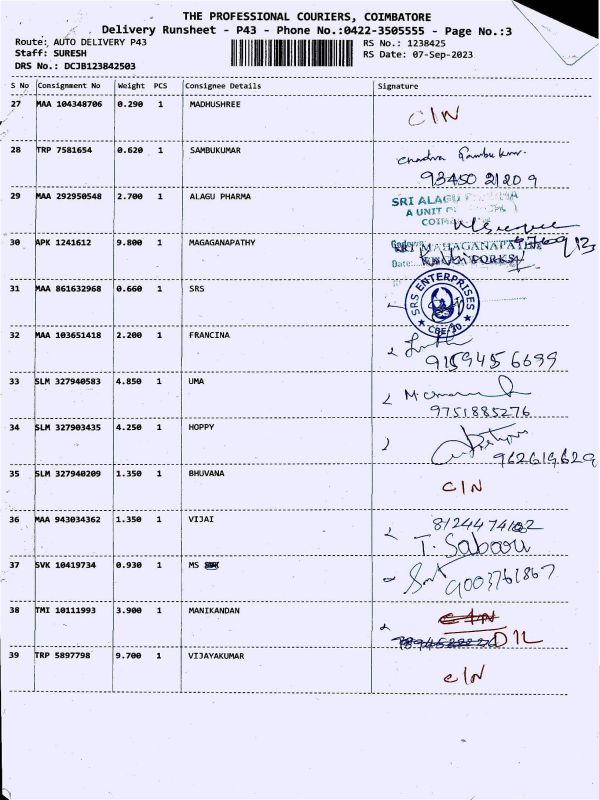 THE PROFESSIONAL COURIERS, COIMBATORE
Delivery Runsheet - P43 - Phone No.:0422-3505555 - Page No.:3
Route: AUTO DELIVERY P43 RS No.: 1238425
Staff: SURESH RS Date: 07-Sep-2023
DRS No.: DCJB123842503
S No Consignment No Weight PCS Consignee Details Signature
27 MAA 104348706 0.290 1 MADHUSHREE C/N
28 TRP 7581654 0.620 1 SAMBUKUMAR
93450 21209
29 MAA 292950548 2.700 1 ALAGU PHARMA SRI ALAGU
A UNIT
30 APK 1241612 9.800 1 MAGAGANAPATHY
Date:
31 MAA 861632968 0.660 1 SRS SRS ENTERPRISES CBE-30
32 MAA 103651418 2.200 1 FRANCINA
9159456699
33 SLM 327940583 4.850 1 UMA
9751885276
34 SLM 327903435 4.250 1 HOPPY
962619629
35 SLM 327940209 1.350 1 BHUVANA C/N
36 MAA 943034362 1.350 1 VIJAI
T. Sabari
37 SVK 10419734 0.930 1 MS
9003761867
38 TMI 10111993 3.900 1 MANIKANDAN C/N
D/L
39 TRP 5897798 9.700 1 VIJAYAKUMAR C/N